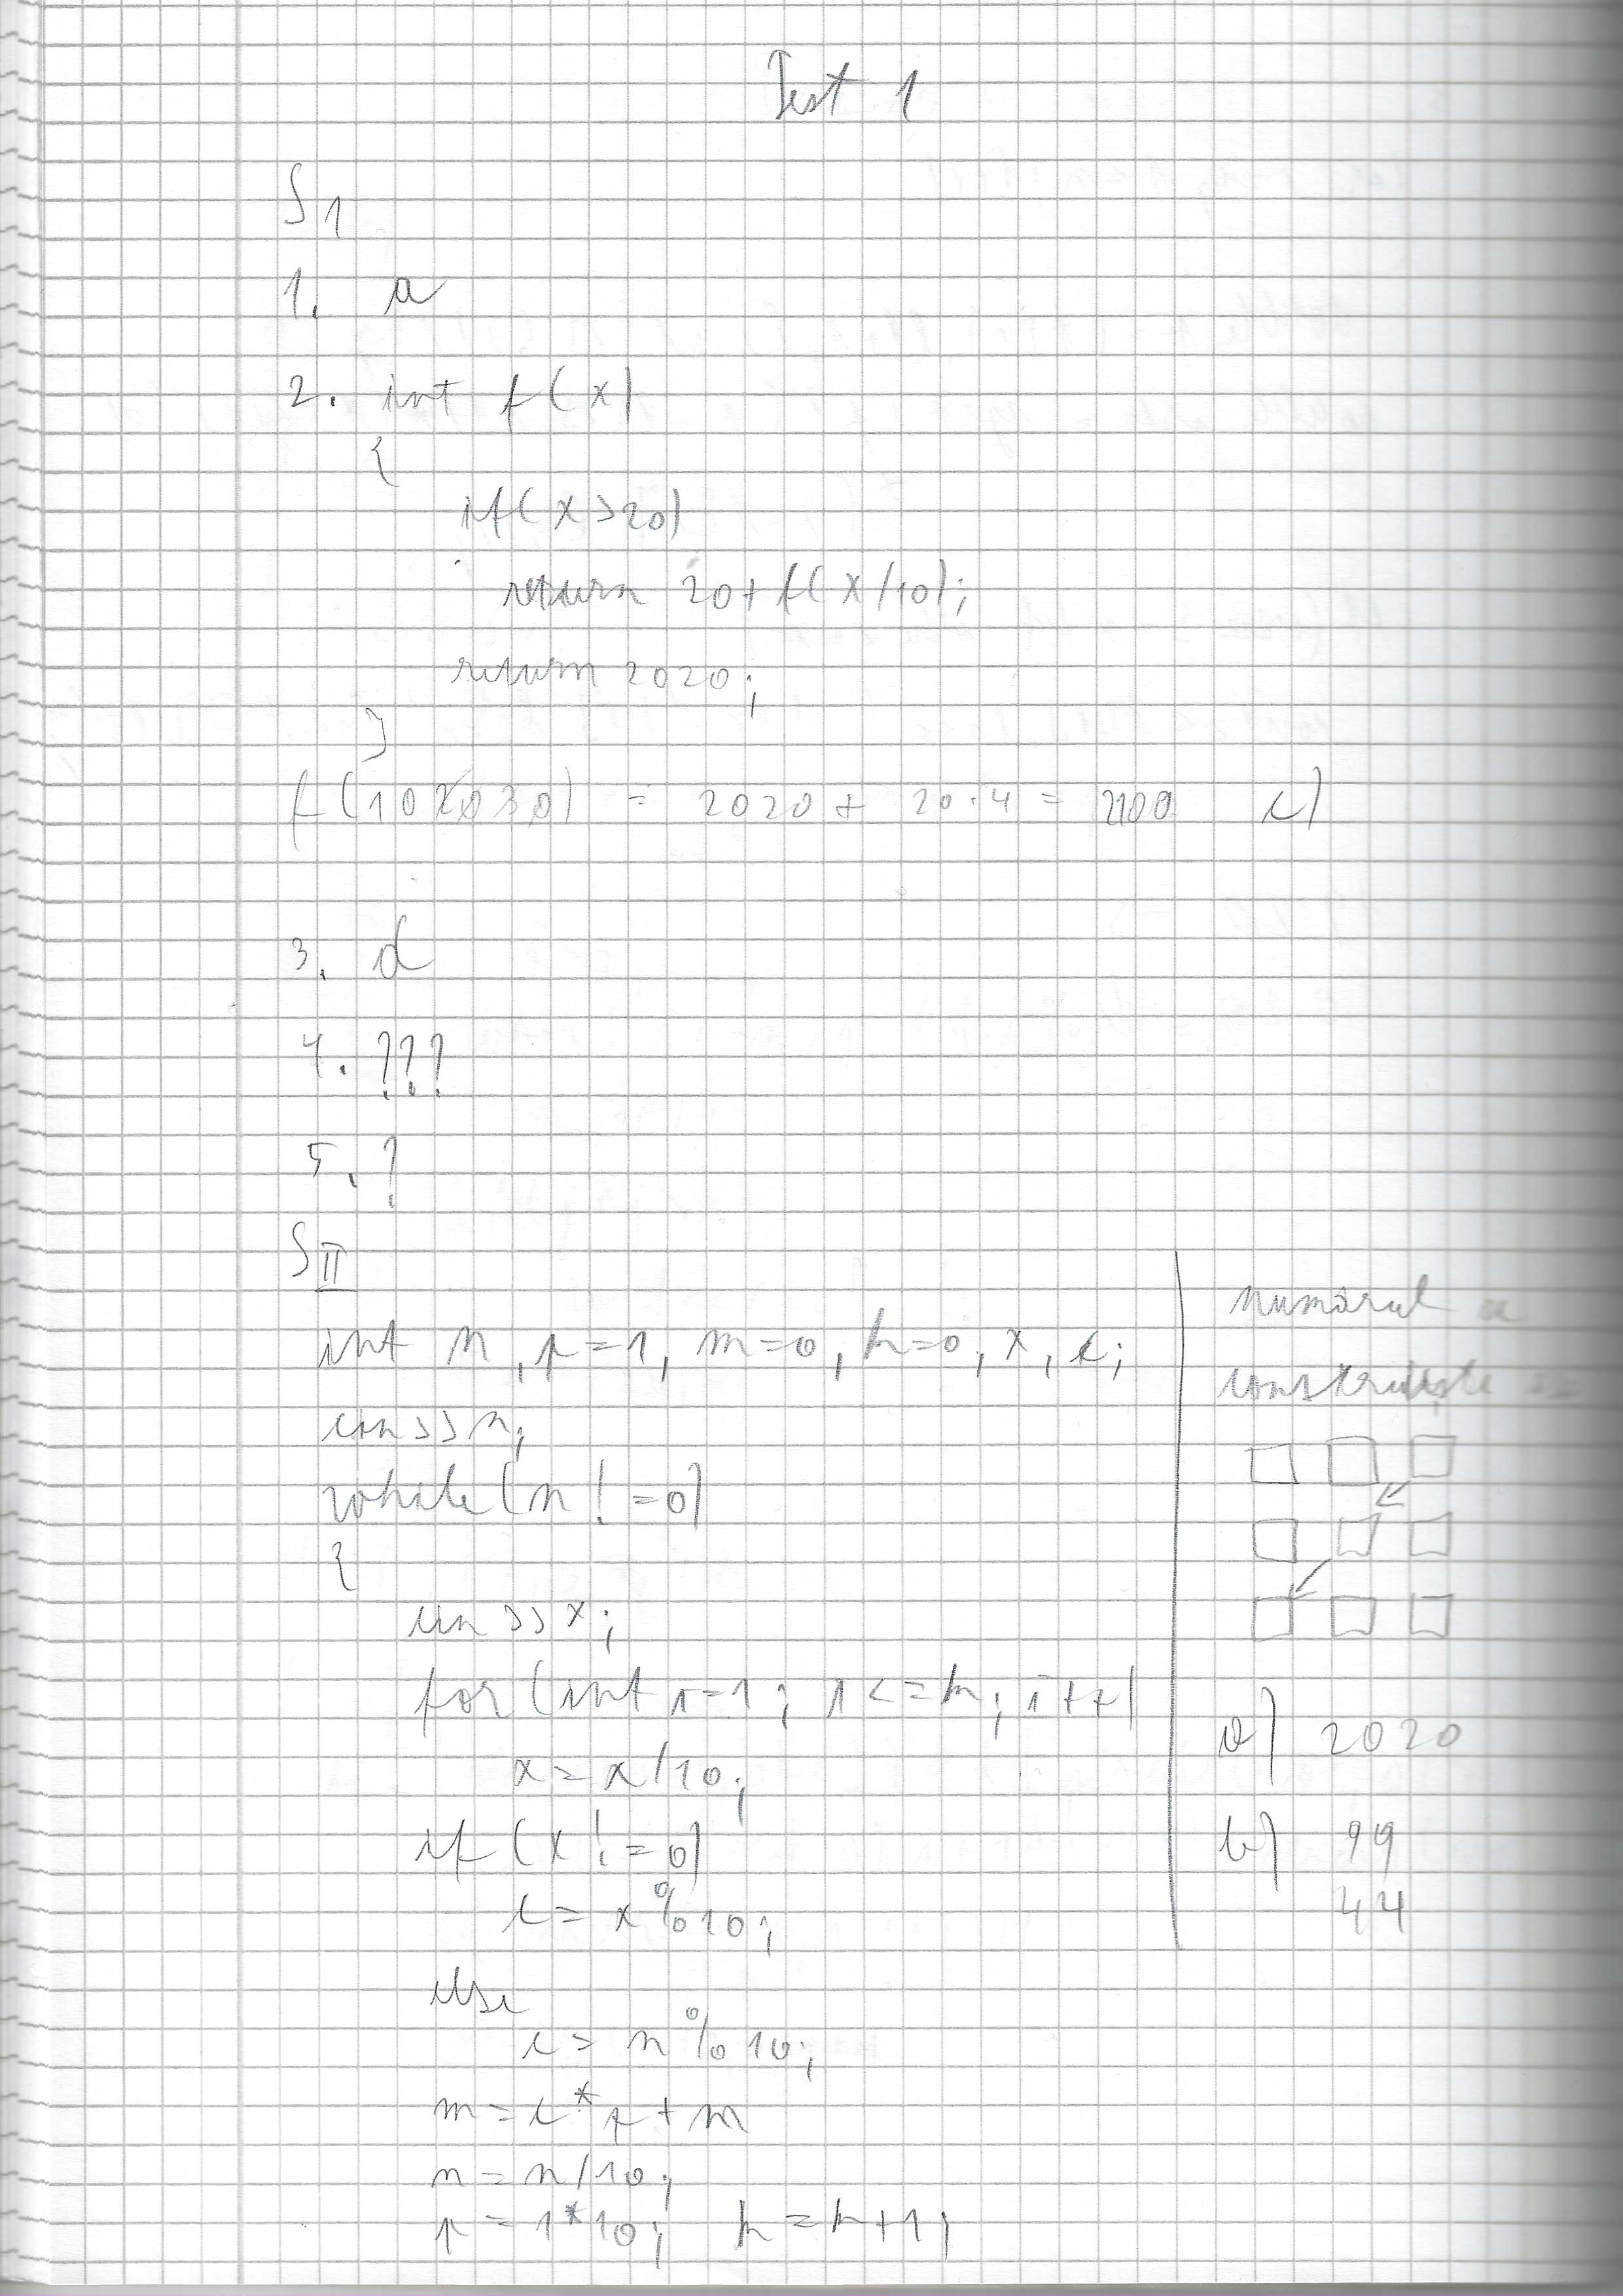 Test 1
S1
1. a
2. int f(x)
{
if(x>20)
return 20+f(x/10);
return 2020;
}
f(102030) = 2020 + 20·4 = 2100 c)
3. d
4. ???
5. ?
S II
int n, p=1, m=0, k=0, x, c;
cin>>n;
while(n!=0)
{
cin>>x;
for(int i=1; i<=k; i++)
x=x/10;
if(x!=0)
c=x%10;
else
c=n%10;
m=c*p+m
n=n/10;
p=1*10; k=k+1;
numărul
construiește
a) 2020
b) 99
44